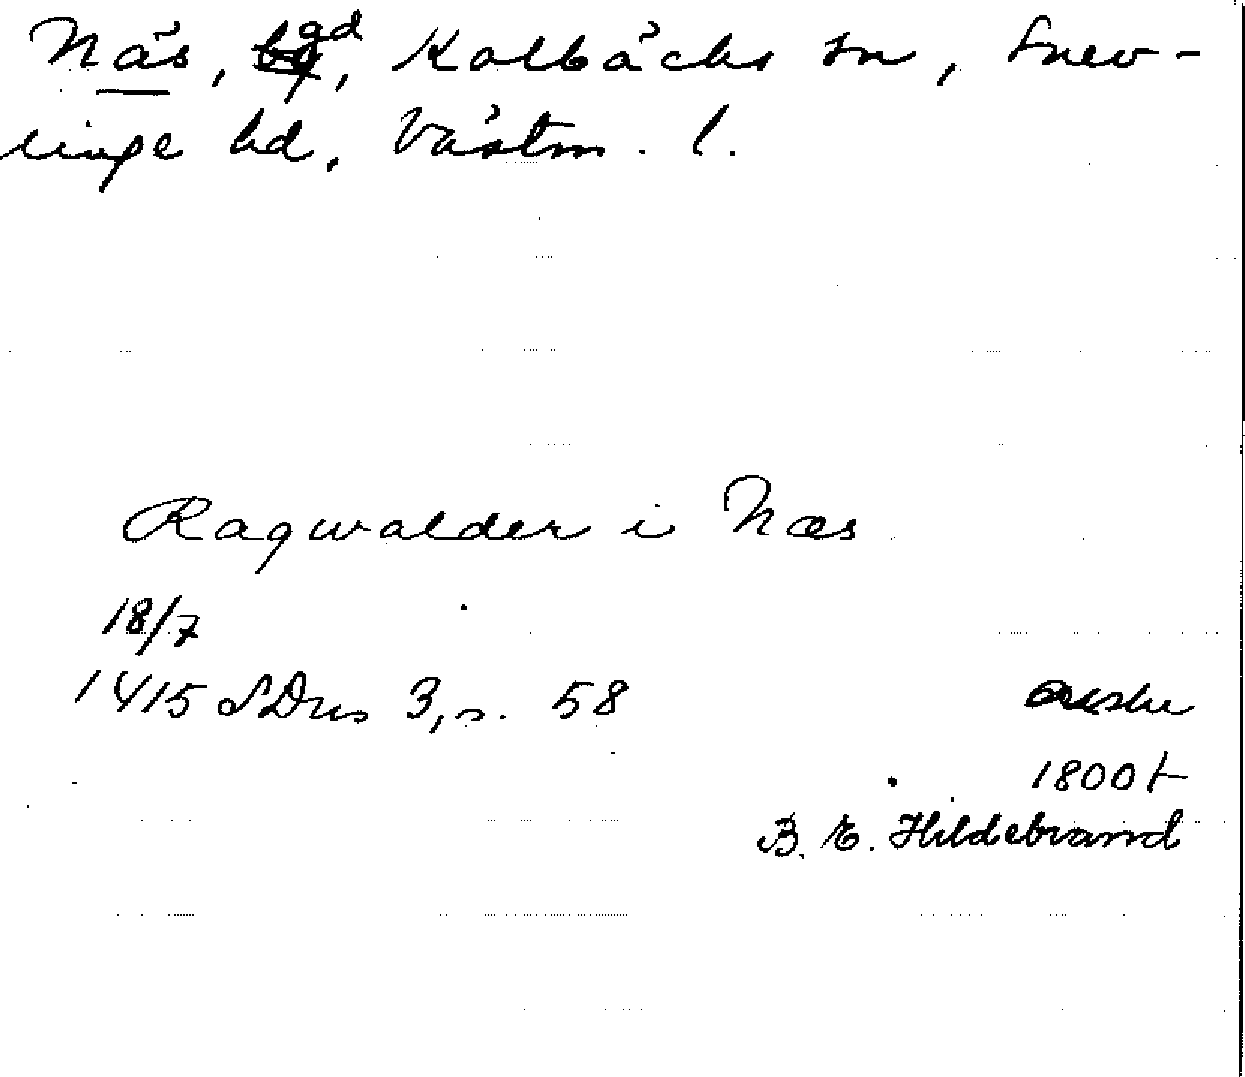 Näs, gd, Kolbäcks sn, Snev-
linge hd, Västm. l.
Ragwalder i Næs
18/7
1415 SDns 3, s. 58
avskr
1800 t
B. E. Hildebrand